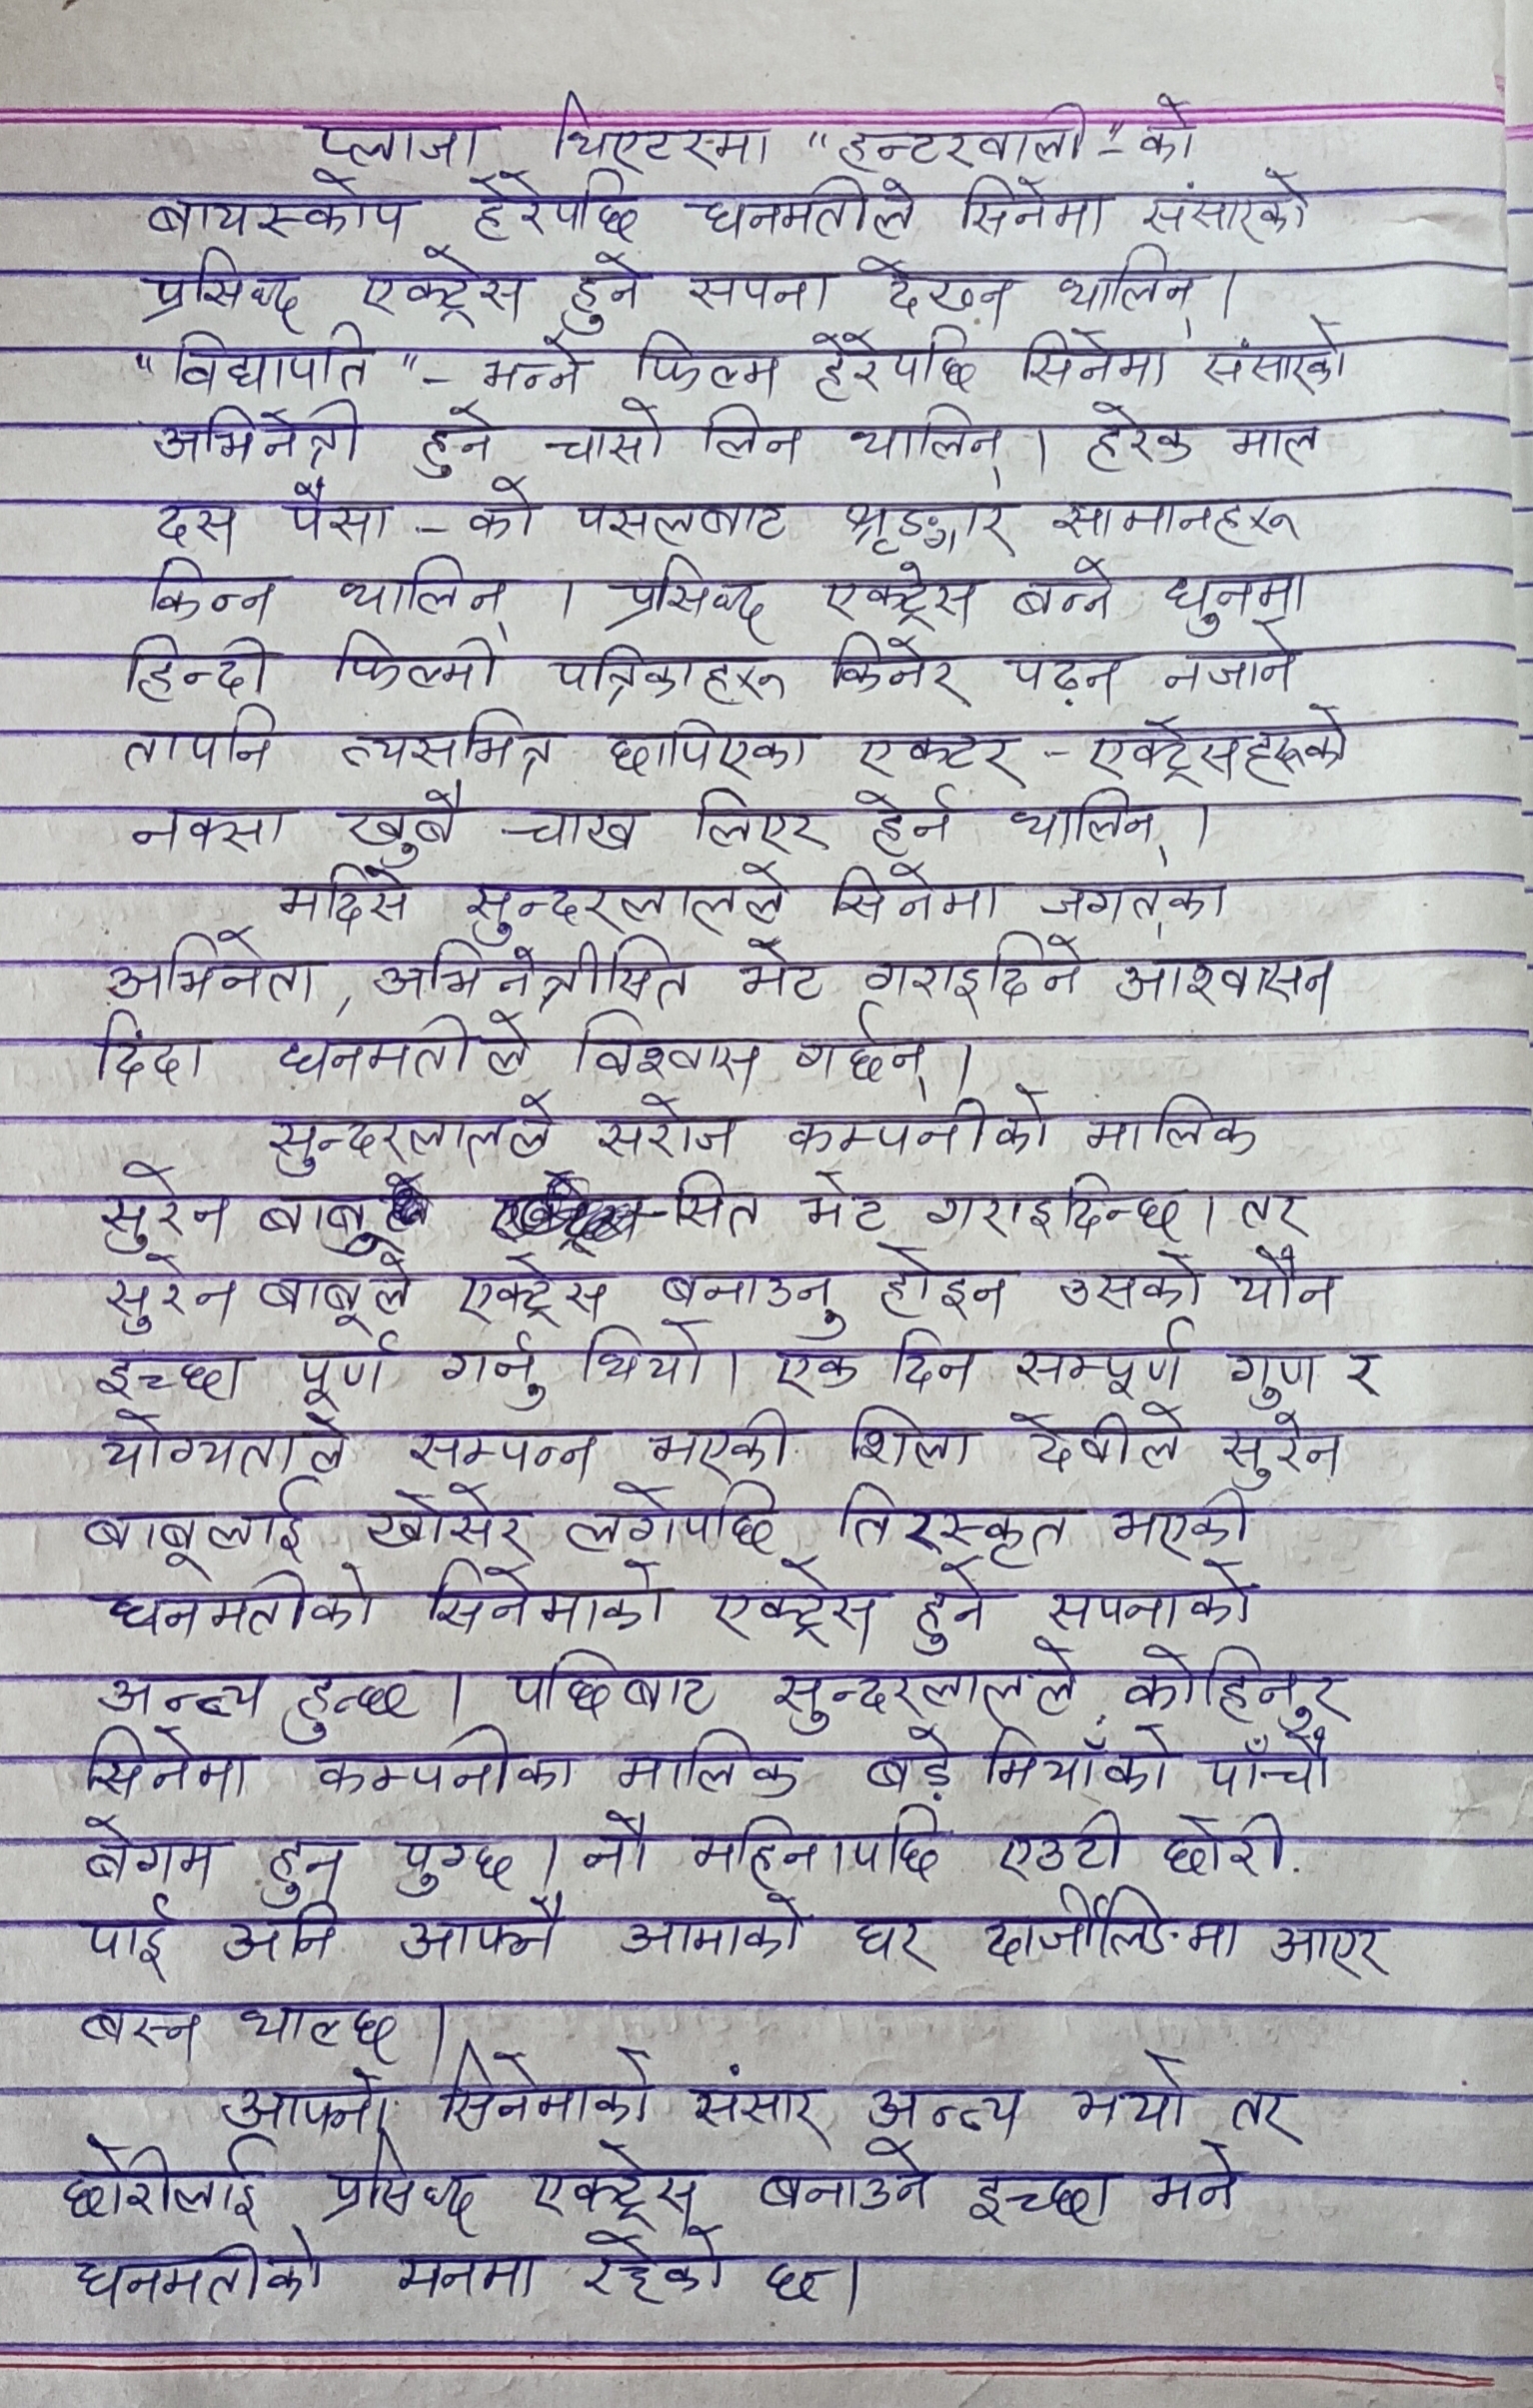 प्लाजा थिएटरमा "हन्टरवाली"-को
बायस्कोप हेरेपछि धनमतीले सिनेमा संसारको
प्रसिध्द एक्ट्रेस हुने सपना देख्न थालिन्।
"विद्यापति"- भन्ने फिल्म हेरेपछि सिनेमा संसारको
अभिनेत्री हुने चासो लिन थालिन्। हरेक माल
दस पैसा - को पसलबाट श्रृङ्गार सामानहरू
किन्न थालिन्। प्रसिध्द एक्ट्रेस बन्ने धुनमा
हिन्दी फिल्मी पत्रिकाहरू किनेर पढ़न नजाने
तापनि त्यसभित्र छापिएका एक्टर - एक्ट्रेसहरूको
नक्सा खुबै चाख लिएर हेर्न थालिन्।
मदिसे सुन्दरलालले सिनेमा जगत्का
अभिनेता, अभिनेत्रीसित भेट गराइदिने आश्वासन
दिंदा धनमतीले विश्वास गर्छन्।
सुन्दरलालले सरोज कम्पनीको मालिक
सुरेन बाबु -सित भेट गराइदिन्छ। तर
सुरेन बाबूले एक्ट्रेस बनाउनु होइन उसको यौन
इच्छा पूर्ण गर्नु थियो। एक दिन सम्पूर्ण गुण र
योग्यताले सम्पन्न भएकी शिला देवीले सुरेन
बाबूलाई खोसेर लगेपछि तिरस्कृत भएकी
धनमतीको सिनेमाको एक्ट्रेस हुने सपनाको
अन्त्य हुन्छ। पछिबाट सुन्दरलालले कोहिनुर
सिनेमा कम्पनीका मालिक बड़े मियाँको पाँचौं
बेगम हुन पुग्छ। नौ महिनापछि एउटी छोरी
पाई अनि आफ्नै आमाको घर दार्जीलिङमा आएर
बस्न थाल्छ।
आफ्नो सिनेमाको संसार अन्त्य भयो तर
छोरीलाई प्रसिध्द एक्ट्रेस बनाउने इच्छा भने
धनमतीको मनमा रहेको छ।